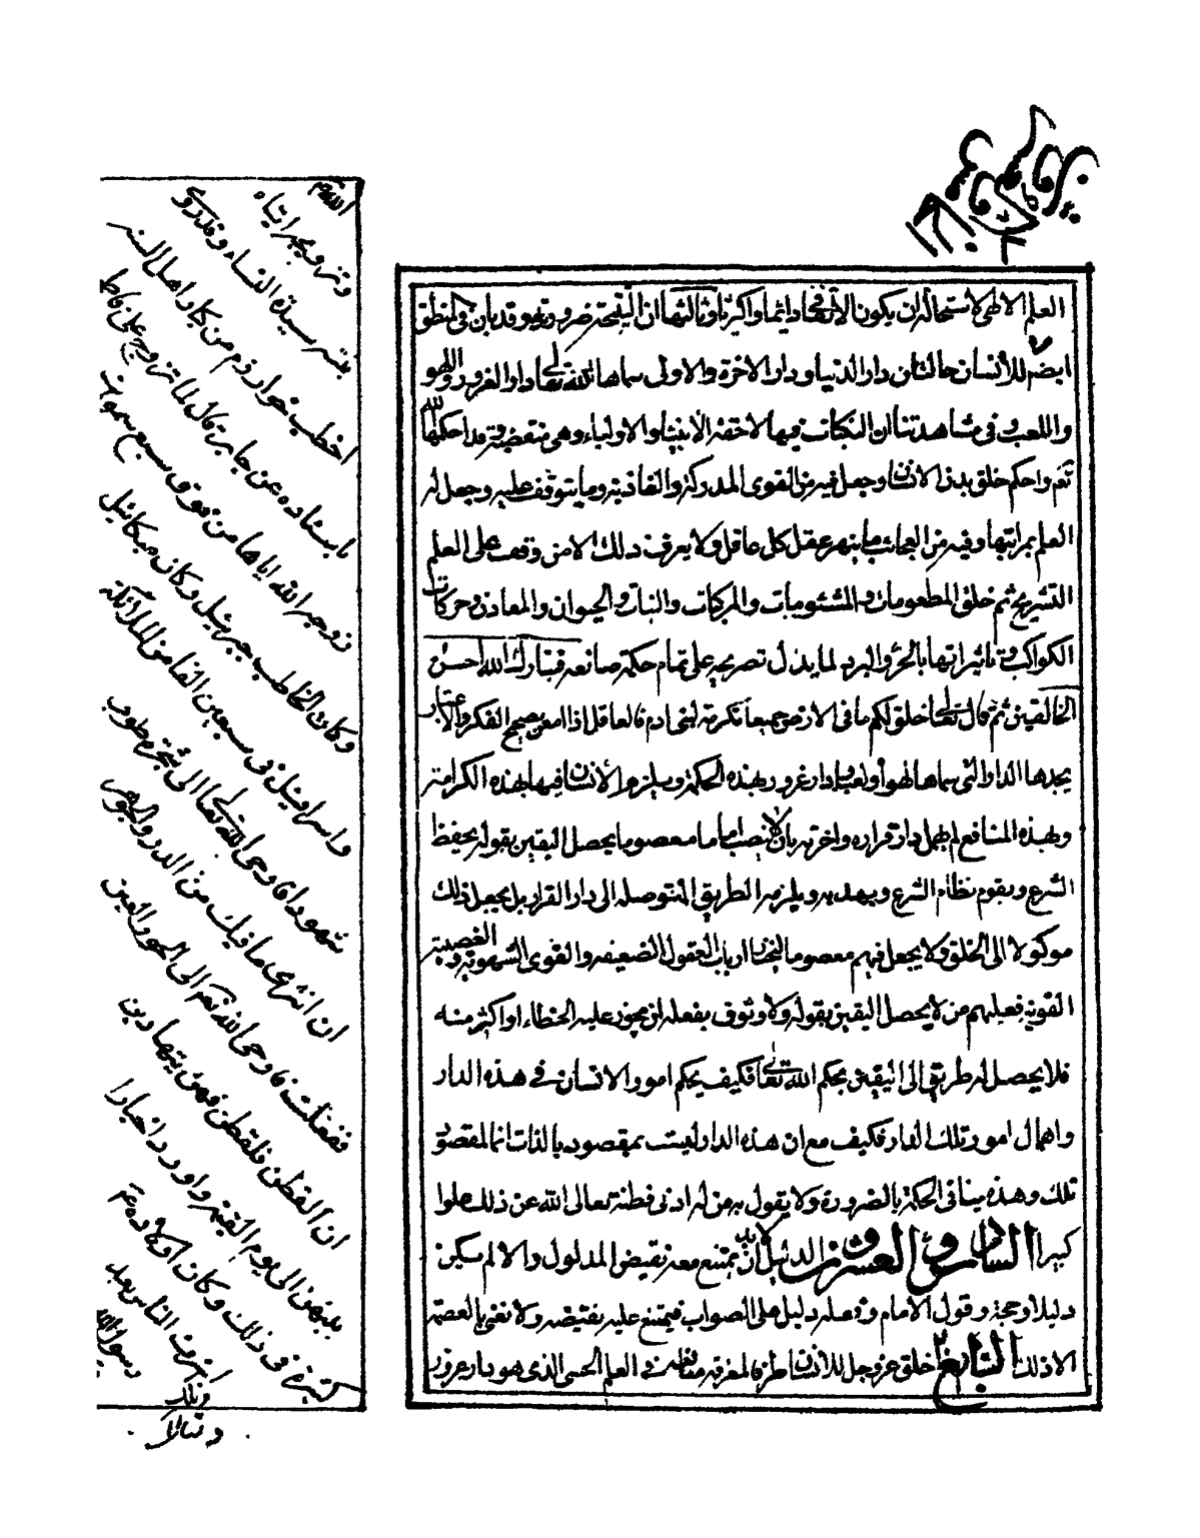 العلم الالهى لاستحالة ان يكون الاتفاقى دائما واكثريا وثالثها ان النتيجة ضرورية وقد بان فى المنطق
ايضا للانسان حالتان دار الدنيا ودار الاخرة والاولى سماها الله تعالى دار الغرور واللهو
واللعب وفى مشاهدتنا ان النكبات فيها لاحقة الانبياء والاولياء وهى منقضية وقد احكمها الله
تعم واحكم خلق بدن الانسان وجعل فيه من القوى المدركة والغاذية وما يتوقف عليه وجعل له
العلم بمراتبها وفيه من العجائب ما يبهر عقل كل عاقل ولا يعرف ذلك الا من وقف على العلم
التشريح ثم خلق المطعومات والمشمومات والمركبات والنبات والحيوان والمعادن وحركات
الكواكب وتاثيراتها بالحر والبرد لما يدل تصريحه على تمام حكمة صانعه فتبارك الله احسن
الخالقين ثم قال تعالى خلق لكم ما فى الارض جميعا تكرمة لبنى ادم فالعاقل اذا امعن صحيح الفكر والاعتبار
يجد هذا الدار التى سماها لهوا ولعبا ودار غرور بهذه الحكمة ويلزم الانسان فيها بهذه الكرامة
وبهذه المنافع لم يهمل دار قراره واخرته بان لا ينصب اماما معصوما يحصل اليقين بقوله يحفظ
الشرع ويقوم نظام الشرع ويهديه ويلزمه الطريق المتوصلة الى دار القرار بل يجعل ذلك
موكولا الى الخلق ولا يجعل فيهم معصوما ارباب العقول الضعيفة والقوى الشهوية والغضبية
القوية فيعليهم من لا يحصل اليقين بقوله ولا وثوق بفعله اذ يجوز عليه الخطاء او اكثر منه
فلا يحصل له طريق الى اليقين بحكم الله تعالى فكيف يحكم امور الانسان فى هذه الدار
واهمال امور تلك الدار فكيف مع ان هذه الدار ليست بمقصودة بالذات انما المقصود
تلك وهذه ينافى الحكمة بالضرورة ولا يقول به من له ادنى فطنة تعالى الله عن ذلك علوا
كبيرا السادس والعشرون الدليل لا بد ان يمتنع معه نقيض المدلول والا لم يكن
دليلا وحجة وقول الامام وفعله دليل على الصواب فيمتنع عليه نقيضه ولا نعنى بالعصمة
الا ذلك السابع خلق عز وجل للانسان طرقا لمعرفة فى العلم الحسى الذى هو دار غرور
اللهم
وتزويجه اياه
بنته سيدة النساء وقد روى
اخطب خوارزم من كبار اهل السنة
باسناده عن جابر قال لما تزوج على فاطمة
زوجه الله اياها من فوق سبع سموات
وكان الخاطب جبرئيل وكان ميكائيل
واسرافيل فى سبعين الفا من الملائكة
شهودا فاوحى الله تعالى الى شجرة طوبى
ان انثرى ما فيك من الدر والجوهر
ففعلت فاوحى الله تعم الى الحور العين
ان القطن فلقطن فهن يتهادين
بينهن الى يوم القيمة واورد اخبارا
كثيرة فى ذلك وكان اولاده عم
اشرف الناس بعد
رسول الله